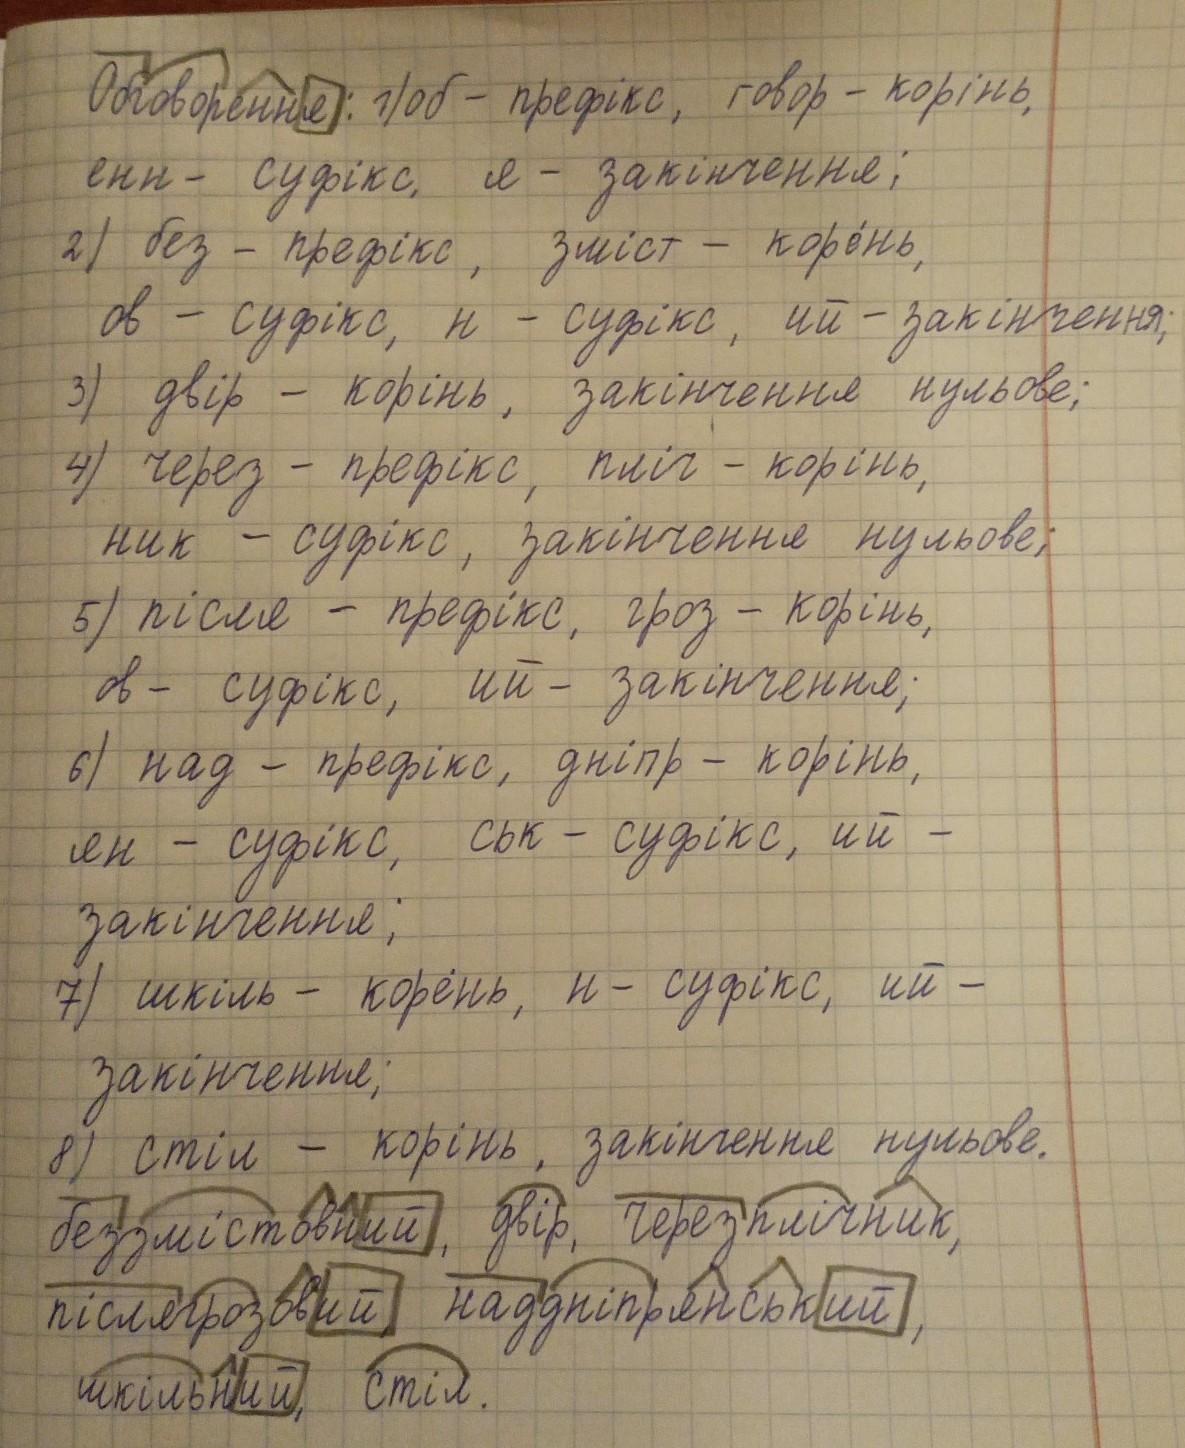 Обговорення: 1) об - префікс, говор - корінь,
енн - суфікс, я - закінчення;
2) без - префікс, зміст - корень,
ов - суфікс, н - суфікс, ий - закінчення;
3) двір - корінь, закінчення нульове;
4) через - префікс, пліч - корінь,
ник - суфікс, закінчення нульове;
5) після - префікс, гроз - корінь,
ов - суфікс, ий - закінчення;
6) над - префікс, дніпр - корінь,
ян - суфікс, ськ - суфікс, ий -
закінчення;
7) шкіль - корень, н - суфікс, ий -
закінчення;
8) стіл - корінь, закінчення нульове.
беззмістовний, двір, черезплічник,
післягрозовий, наддніпрянський,
шкільний, стіл.